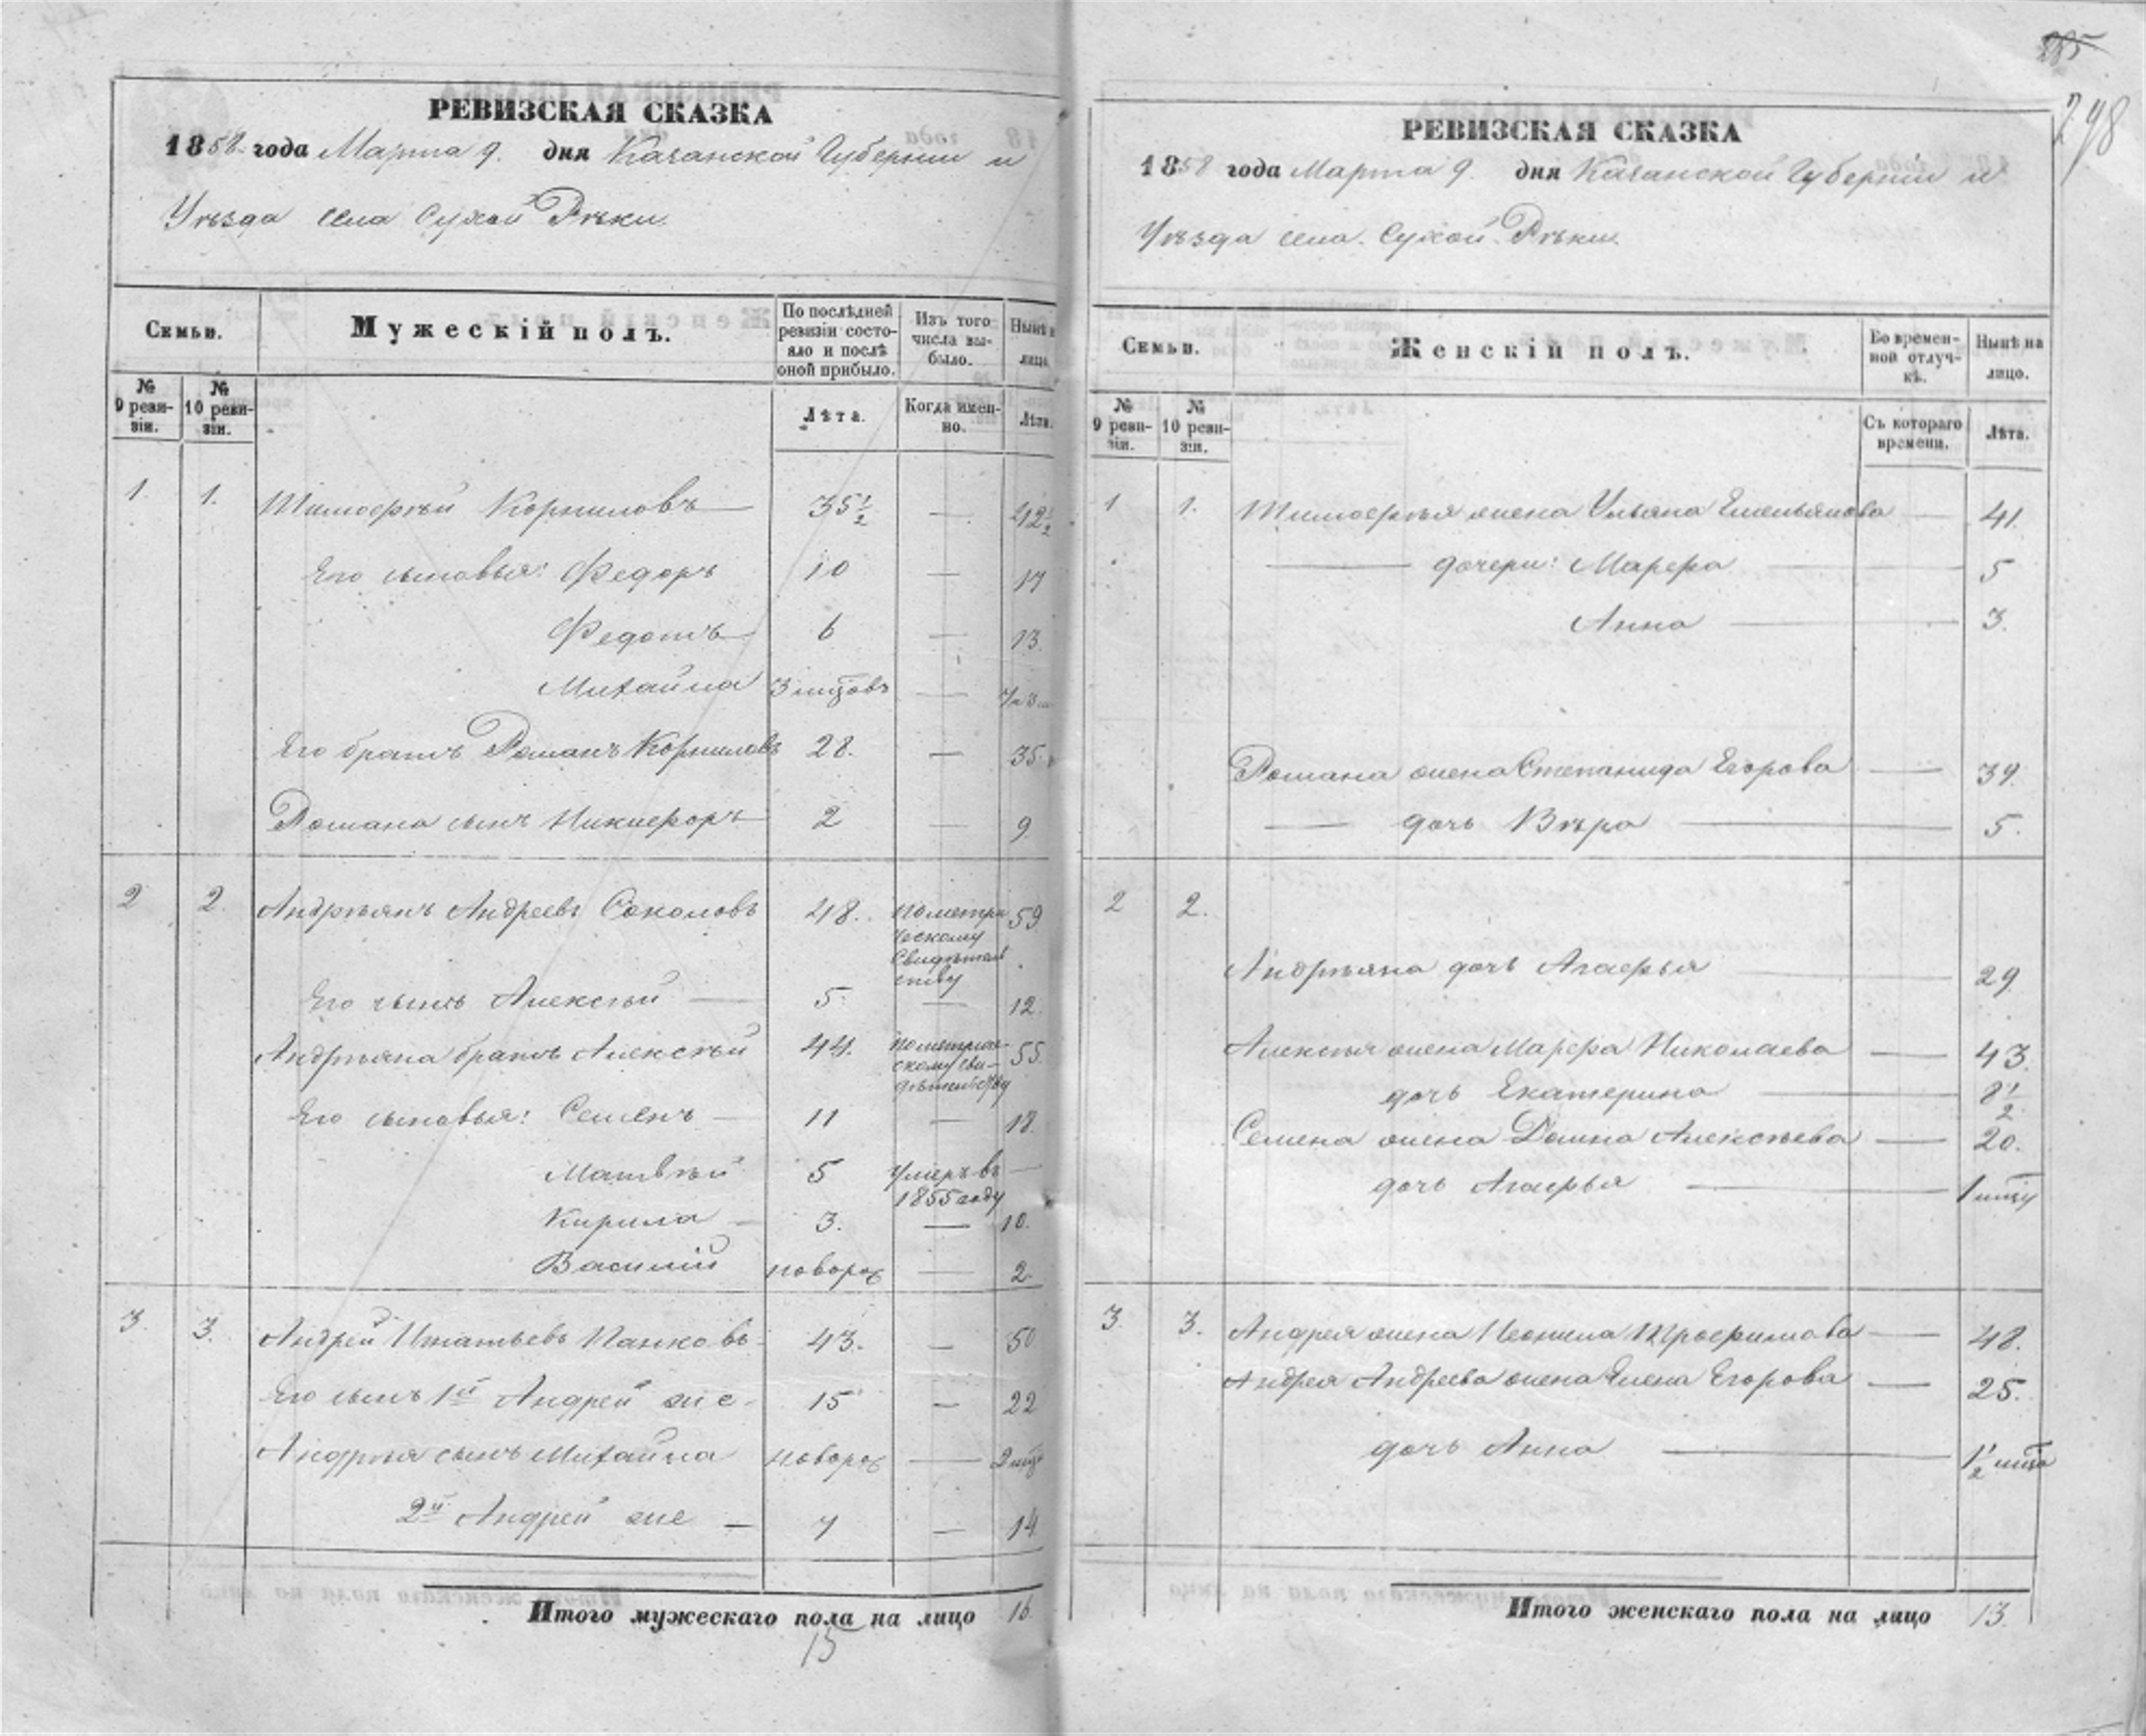 РЕВИЗСКАЯ СКАЗКА
1858 года Марта 9. дня Казанской Губернии и
Уѣзда села Сухой Рѣки.
Семьи. Мужескій полъ. По послѣдней ревизіи состояло и послѣ оной прибыло. Изъ того числа выбыло. Нынѣ на лицо.
№ 9 ревизіи. № 10 ревизіи. Лѣта. Когда именно. Лѣта.
1. 1. Тимофѣй Корниловъ 35½ — 42½
Его сыновья: Федоръ 10 — 17
Федотъ 6 — 13.
Михайла 3 мцовъ — 7
Его братъ Романъ Корниловъ 28. — 35.
Романа сынъ Никифоръ 2 — 9.
2 2. Андрѣянъ Андреевъ Соколовъ 48. по метри 59
ческому
свидѣтель
ству
Его сынъ Алексѣй — 5. — 12.
Андрѣяна братъ Алексѣй 44. по метриче- 55.
скому сви-
дѣтельству
Его сыновья: Семенъ — 11 — 18.
Матвѣй 5 умеръ въ —
1855 году
Кирила — 3. — 10.
Василій новорож — 2.
3. 3. Андрей Игнатьевъ Панковъ 43. — 50
Его сынъ 1й Андрей же — 15 — 22
Андрѣя сынъ Михайла новорож — 2 мца
2й Андрей же — 7 — 14
Итого мужескаго пола на лицо 16.
15
285
298
РЕВИЗСКАЯ СКАЗКА
1858 года Марта 9. дня Казанской Губерніи и
Уѣзда села. Сухой. Рѣки.
Семьи. Женскій полъ. Во временной отлучкѣ. Нынѣ на лицо.
№ 9 ревизіи. № 10 ревизіи. Съ котораго времени. Лѣта.
1 1. Тимофѣя жена Ульяна Емельянова — 41.
— дочери: Марфа — 5
Анна — 3.
Романа жена Степанида Егорова — 39.
— дочь Вѣра — 5.
2 2.
Андрѣяна дочь Агафья — 29.
Алексѣя жена Марфа Николаева — 43.
дочь Екатерина — 8½
Семена жена Домна Алексѣева — 20.
дочь Агафья — 1 мцу
3. 3. Андрея жена Неонила Трофимова — 48.
Андрея Андреева жена Елена Егорова — 25.
дочь Анна — 1½ мца
Итого женскаго пола на лицо 13.